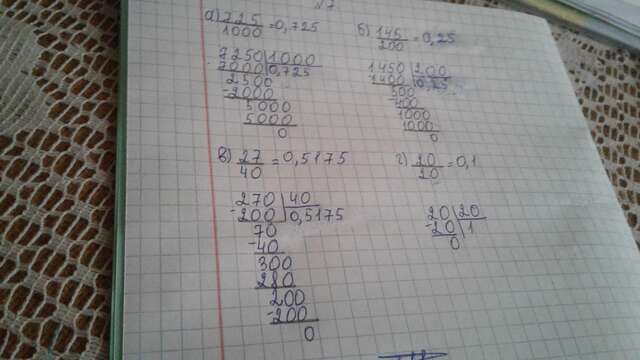 №7
а) 725/1000 = 0,725
б) 145/200 = 0,25
7250 | 1000
- 7000 | 0,725
2500
- 2000
5000
5000
0
1450 | 200
- 1400 | 0,725
500
- 400
1000
1000
0
в) 27/40 = 0,5175
г) 20/20 = 0,1
270 | 40
- 200 | 0,5175
70
- 40
300
280
200
- 200
0
20 | 20
- 20 | 1
0